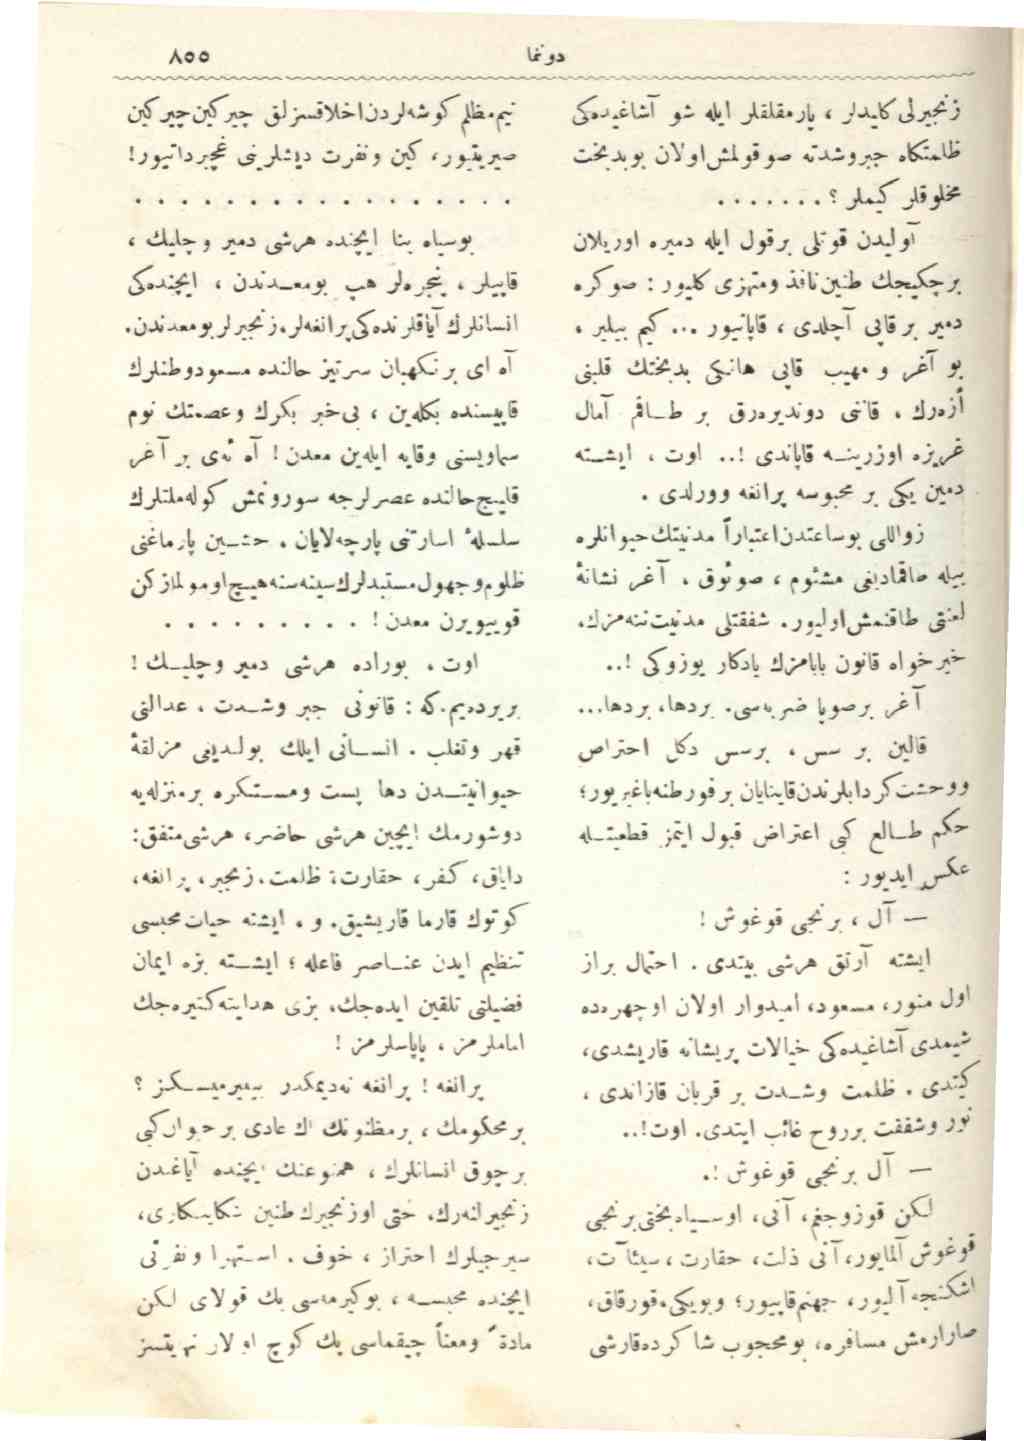 دوننما
٨٥٥
زنجیرلی کلیدلر ، پارمقلقلر ایله شو آشاغیده‌کی
ظلمتکاه جبروشدته صوقولمش اولان بوبدبخت
مخلوقلر کیملر ؟ . . . . . . .
آولیدن قوتلی برقول ایله دمیره اوریلان
برچکیجك طنین نافذ ومتهزی کلیور : صوکره
دمیر برقاپی آچلدی ، قاپاتیور ... کیم بیلیر ،
بو آغر و مهیب قاپی هانیکی بدبختك قلبنی
أزه‌رك ، قاننی دوندیره‌رق بر طاقم آمال
غریزه اوزرینه قاپاندی !.. اوت ، ایشته
دمین یکی بر محبوسه پرانغه وورلدی .
زواللی بوساعتدن اعتباراً مدنیتك حیوانلره
بیله طاقمادیغی مشئوم ، صوئوق ، آغر نشانهٔ
لعنتی طاقنمش اولیور. شفقتلی مدنیت ننه‌مزك،
خیرخواه قانون بابامزك یادکار یوزوکی !..
آغر برصوپا ضربه‌سی. بردها، بردها...
قالین بر سس ، برسس دکل احتراص
ووحشت کردابلرندن قاینایان برفورطنه باغیریور؛
حکم طالع کبی اعتراض قبول ایتمز قطعیتله
عکس ایدیور :
— آل ، برنجی قوغوش !
ایشته آرتق هرشی بیتدی . احتمال براز
اول منور، مسعود، امیدوار اولان اوچهره‌ده
شیمدی آشاغیده‌کی خیالات پریشانه قاریشدی،
کیتدی . ظلمت وشدت بر قربان قازاندی ،
نور وشفقت برروح غائب ایتدی. اوت!..
— آل برنجی قوغوش !.
لکن قوزوجغم، آنی، اوسیاه بختی برنجی
قوغوش آلمایور، آنی ذلت، حقارت، سیئات،
اشکنجه آلیور، جهنم قاپیور؛ وبویکی، قورقاق،
صارارمش مسافره، بومحجوب شاکرده قارشی
نیم مظلم کوشه‌لردن اخلاقسزلق چیرکین چیرکین
صیریتیور، کین ونفرت دیشلرینی غیجیرداتیور!
. . . . . . . . . . . . . .
بوسیاه بنا ایچنده هرشی دمیر وچلیك ،
قاپیلر ، پنجره‌لر هپ بومعدندن ، ایچنده‌کی
انسانلرك آیاقلرنده‌کی پرانغه‌لر، زنجیرلر بومعدندن.
آه ای بر نکهبان سرتیز حالنده مسعودوطنلرك
قاپیسنده بکله‌ین ، بی‌خبر بکرك وعصمتك نوم
سماویسنی وقایه ایله‌ین معدن ! آه ئه‌ی بر آغر
قلیج حالنده عصرلرجه سورونمش کوله ملتلرك
سلسلهٔ اسارتنی پارچه‌لایان ، خشین پارماغنی
ظلوم وجهول مستبدلرك سینه‌سنه هیچ اومولمازکن
قوییویرن معدن ! . . . . . . . . .
اوت ، بوراده هرشی دمیر وچلیك !
بریرده‌یم، که : قانونی جبر وشدت ، عدالتی
قهر وتغلب . انسانی ایلك بولدیغی مزلقهٔ
حیوانیتدن دها پست ومستکره برمنزله‌یه
دوشورمك ایچین هرشی حاضر، هرشی متفق:
دایاق، کفر، حقارت؛ ظلمت، زنجیر، پرانغه،
کوتوك قارما قاریشیق. و ، ایشته حیات محبسی
تنظیم ایدن عناصر فاعله ؛ ایشته بزه ایمان
فضیلتی تلقین ایده‌جك، بزی هدایته کتیره‌جك
اماملرمز ، پاپاسلرمز !
پرانغه ! پرانغه نه‌دیمکدر بیلیرمیسکز ؟
برمحکومك ، برمظنونك اك عادی برحیوان کبی
برچوق انسانلرك ، همنوعنك ایچنده آیاغندن
زنجیرلنه‌رك، ختی اوزنجیرك طنین شکایتکاری،
سیرجیلرك احتراز ، خوف . استهزا ونفرتی
ایچنده محبسه ، بوکیرمه‌سی پك قولای لکن
مادةً ومعناً چیقماسی پك کوچ اولان نهایتسز